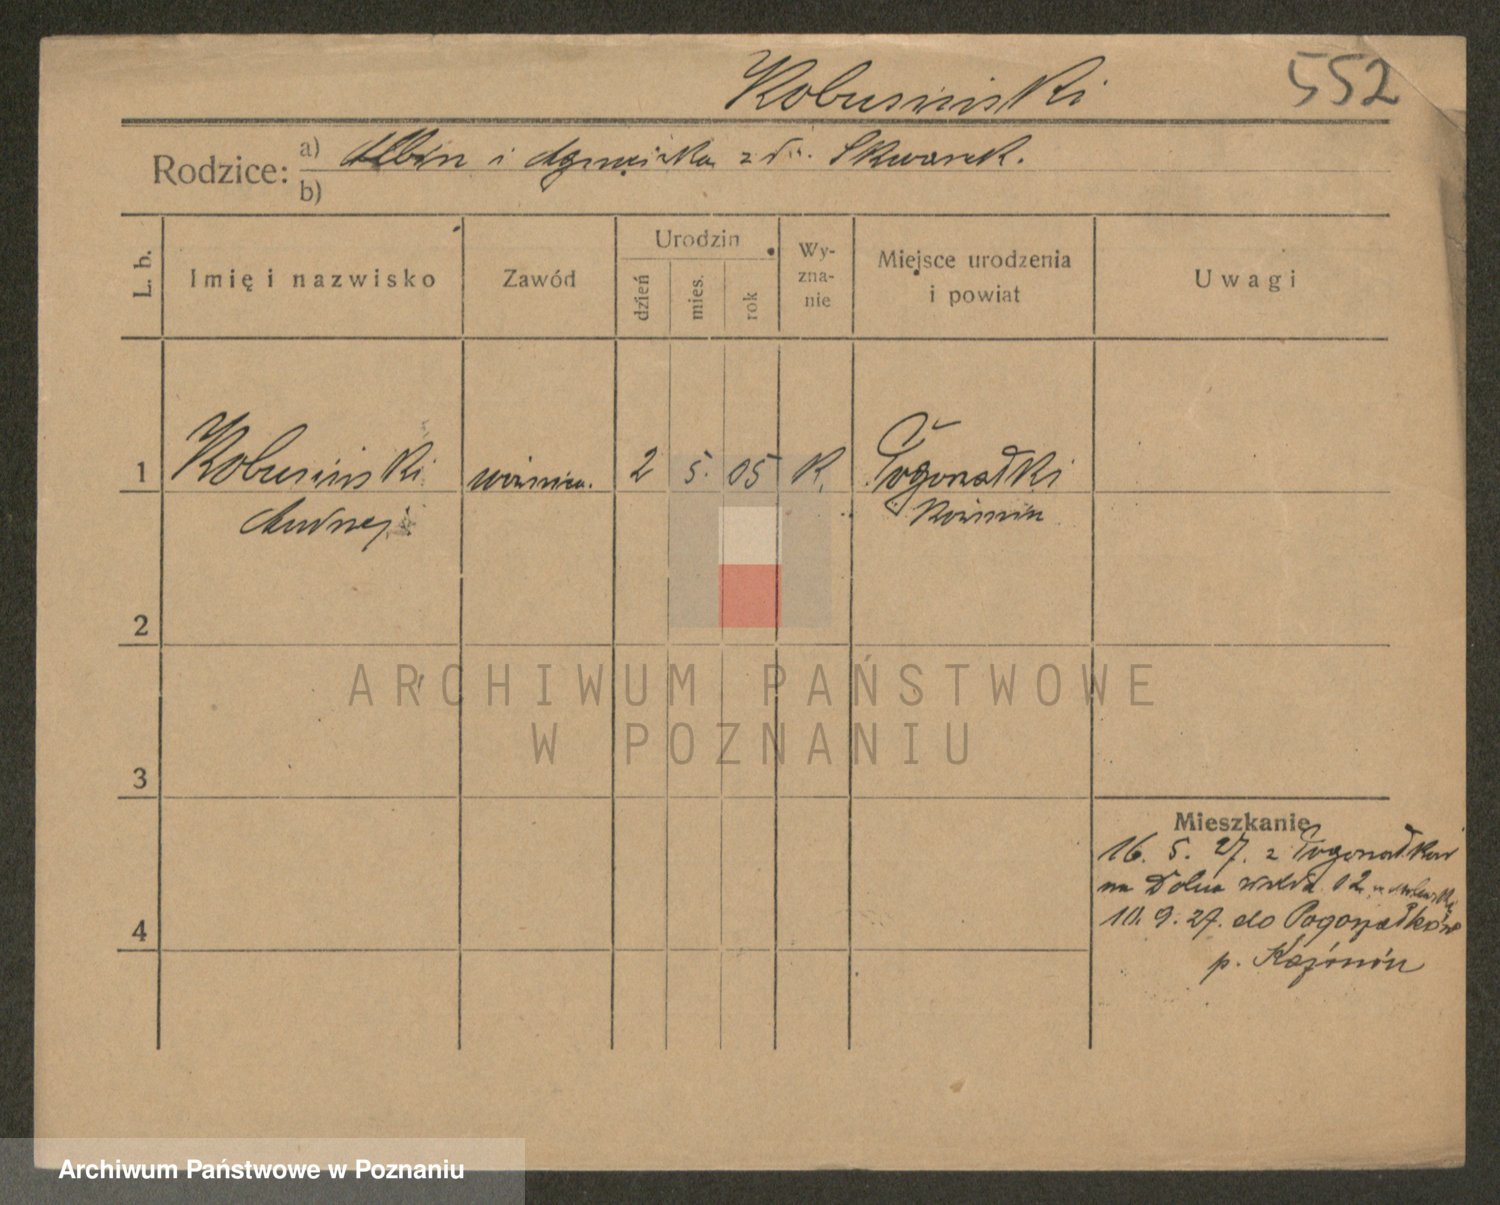 Kobusiński
552
Rodzice:
a) Albin i Agnieszka z d. Skwarek.
b)
L. b.
Imię i nazwisko
Zawód
Urodzin
dzień
mies.
rok
Wy-
zna-
nie
Miejsce urodzenia
i powiat
Uwagi
1
Kobusiński
Andrzej
woźnica.
2
5.
05
K.
Pogorzałki
Koźmin
2
3
4
Mieszkanie
16. 5. 27. z Pogorzałków
na Dolna 12
10. 9. 27. do Pogorzałków
p. Koźmin
ARCHIWUM PAŃSTWOWE
W POZNANIU
Archiwum Państwowe w Poznaniu